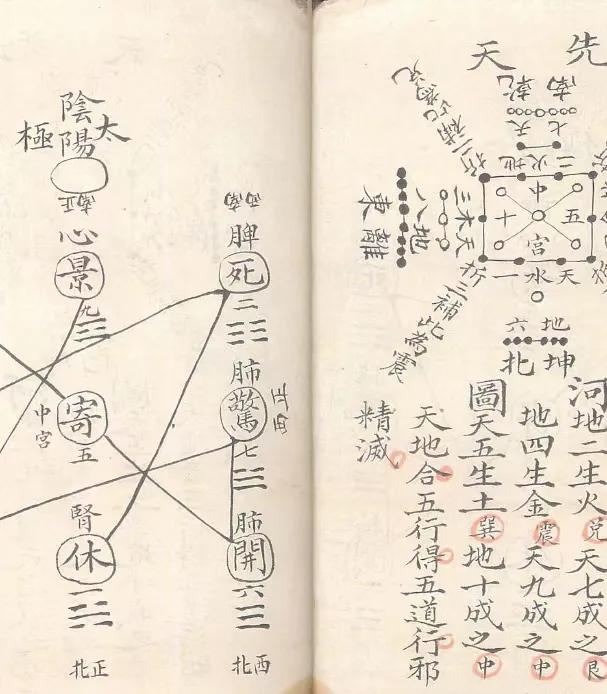 先天
南乾
天七
地二火
中宮
五
十
天三木
地八
東離
天一水
地六
北坤
拆三補此為震
河地二生火兌天七成之艮
地四生金震天九成之中
圖天五生土巽地十成之中
天地合五行得五道行邪
精滅
西南
脾
死
二
肺
驚
正西
七
肺
開
六
西北
太極
陰陽
正南
心
景
九
寄
中宮
五
腎
休
一
正北